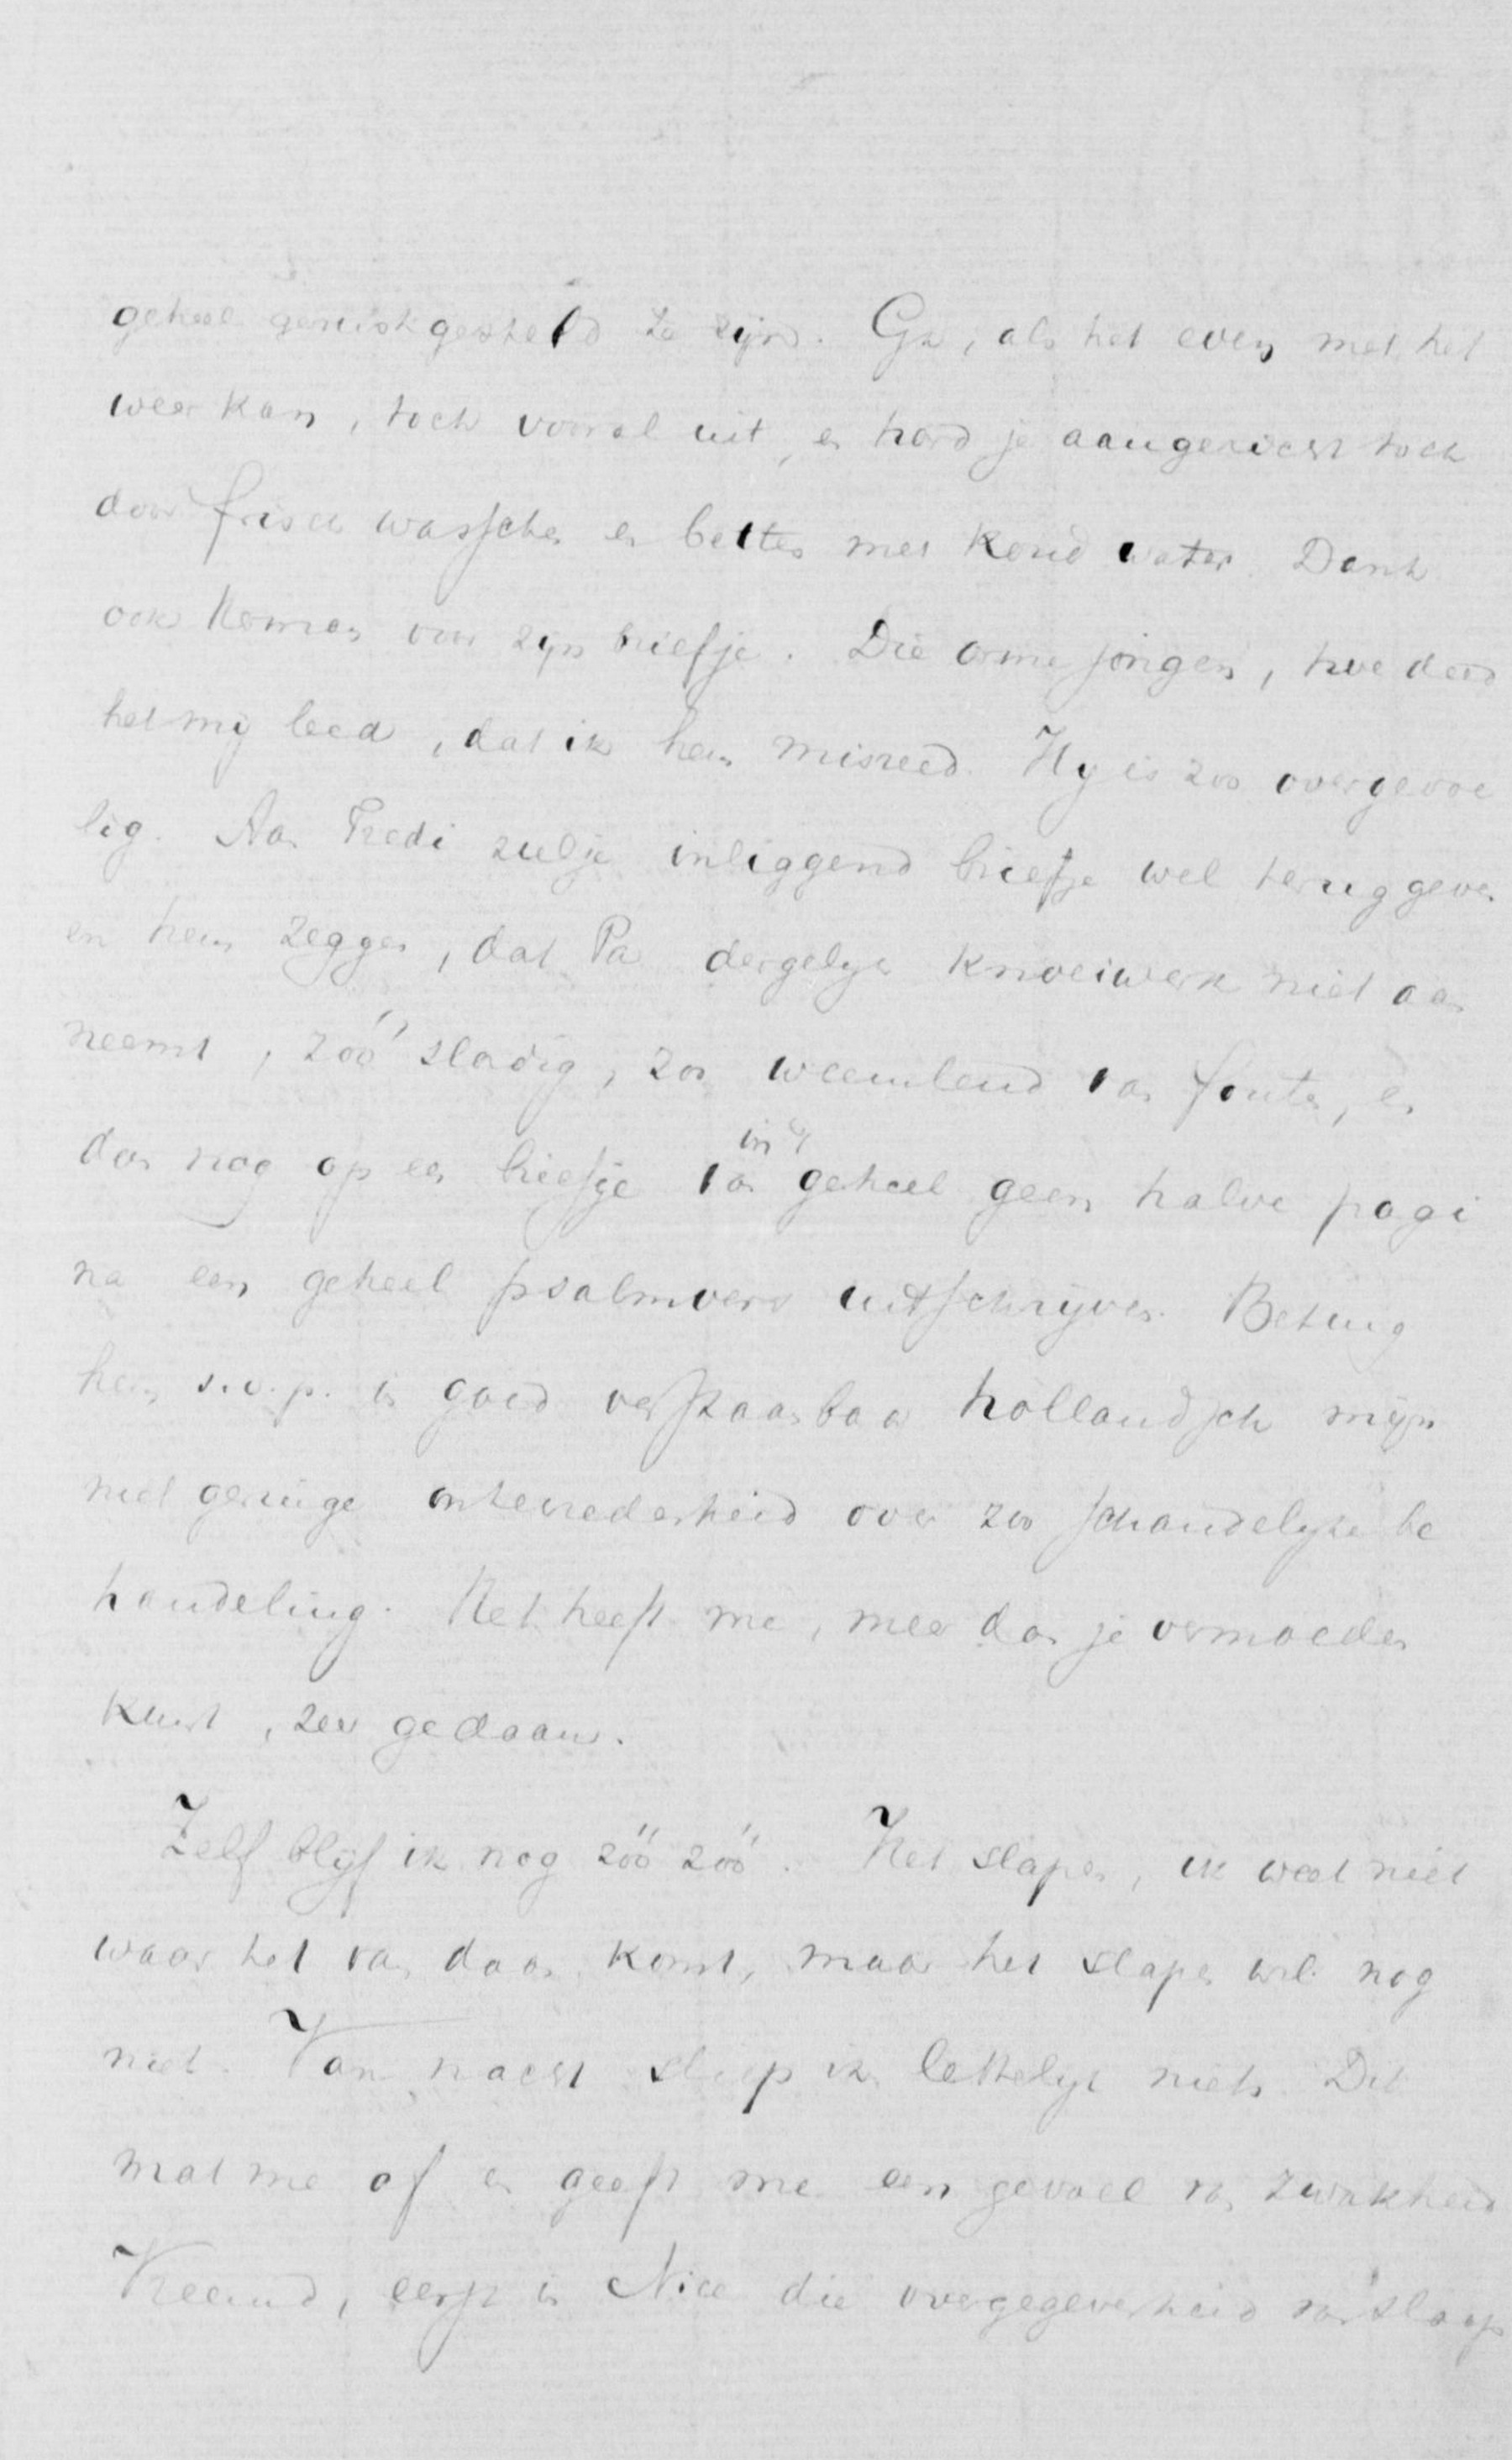 geheel gerustgesteld te zijn. Ga, als het even met het
weer kan, toch vooral uit, en hard je aangezicht toch
door frisch wasschen en betten met koud water. Dank
ook Herman voor zijn briefje. Die arme jongen, hoe deed
het mij leed, dat ik hem misreed. Hij is zoo overgevoe
lig. Aan Fredi zul je inliggend briefje wel teruggeven
en hem zeggen, dat Pa dergelijk knoeiwerk niet aan
neemt, zóó slordig, zoo weemlend van fouten, en
dan nog op een briefje van in 't geheel geen halve pagi
na een geheel psalmvers uitschrijven. Betuig
hem s.v.p. in goed verstaanbaar hollandsch mijn
niet geringe ontevredenheid over zoo schandelijke be
handeling. Het heeft me, meer dan je vermoeden
kunt, zeer gedaan.
Zelf blijf ik nog zóó zóó. Het slapen, ik weet niet
waar het van daan komt, maar het slapen wil nog
niet. Van nacht sliep ik letterlijk niets. Dit
mat me af en geeft me een gevoel van zwakheid
Vreemd, eerst in Nice die overgegevenheid van slaap